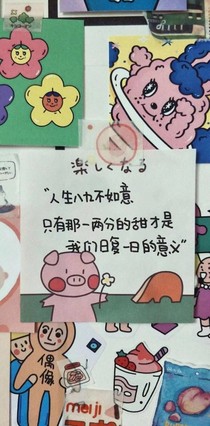 楽しくなる
"人生八九不如意
只有那一两分的甜才是
我们日复一日的意义"
偶像
meiji